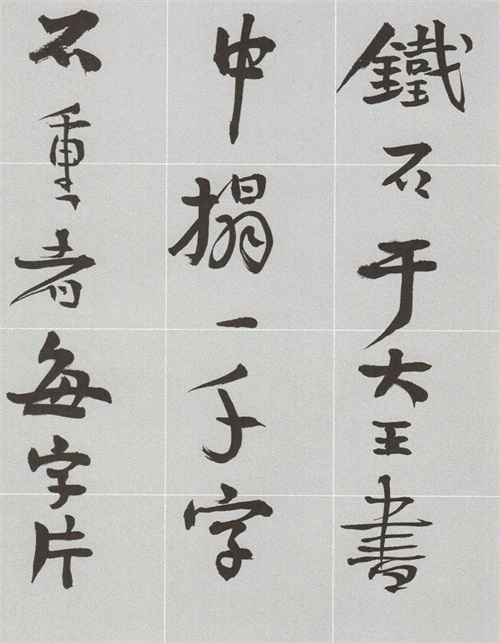 鐵石于大王書
中搨一千字
不重者每字片